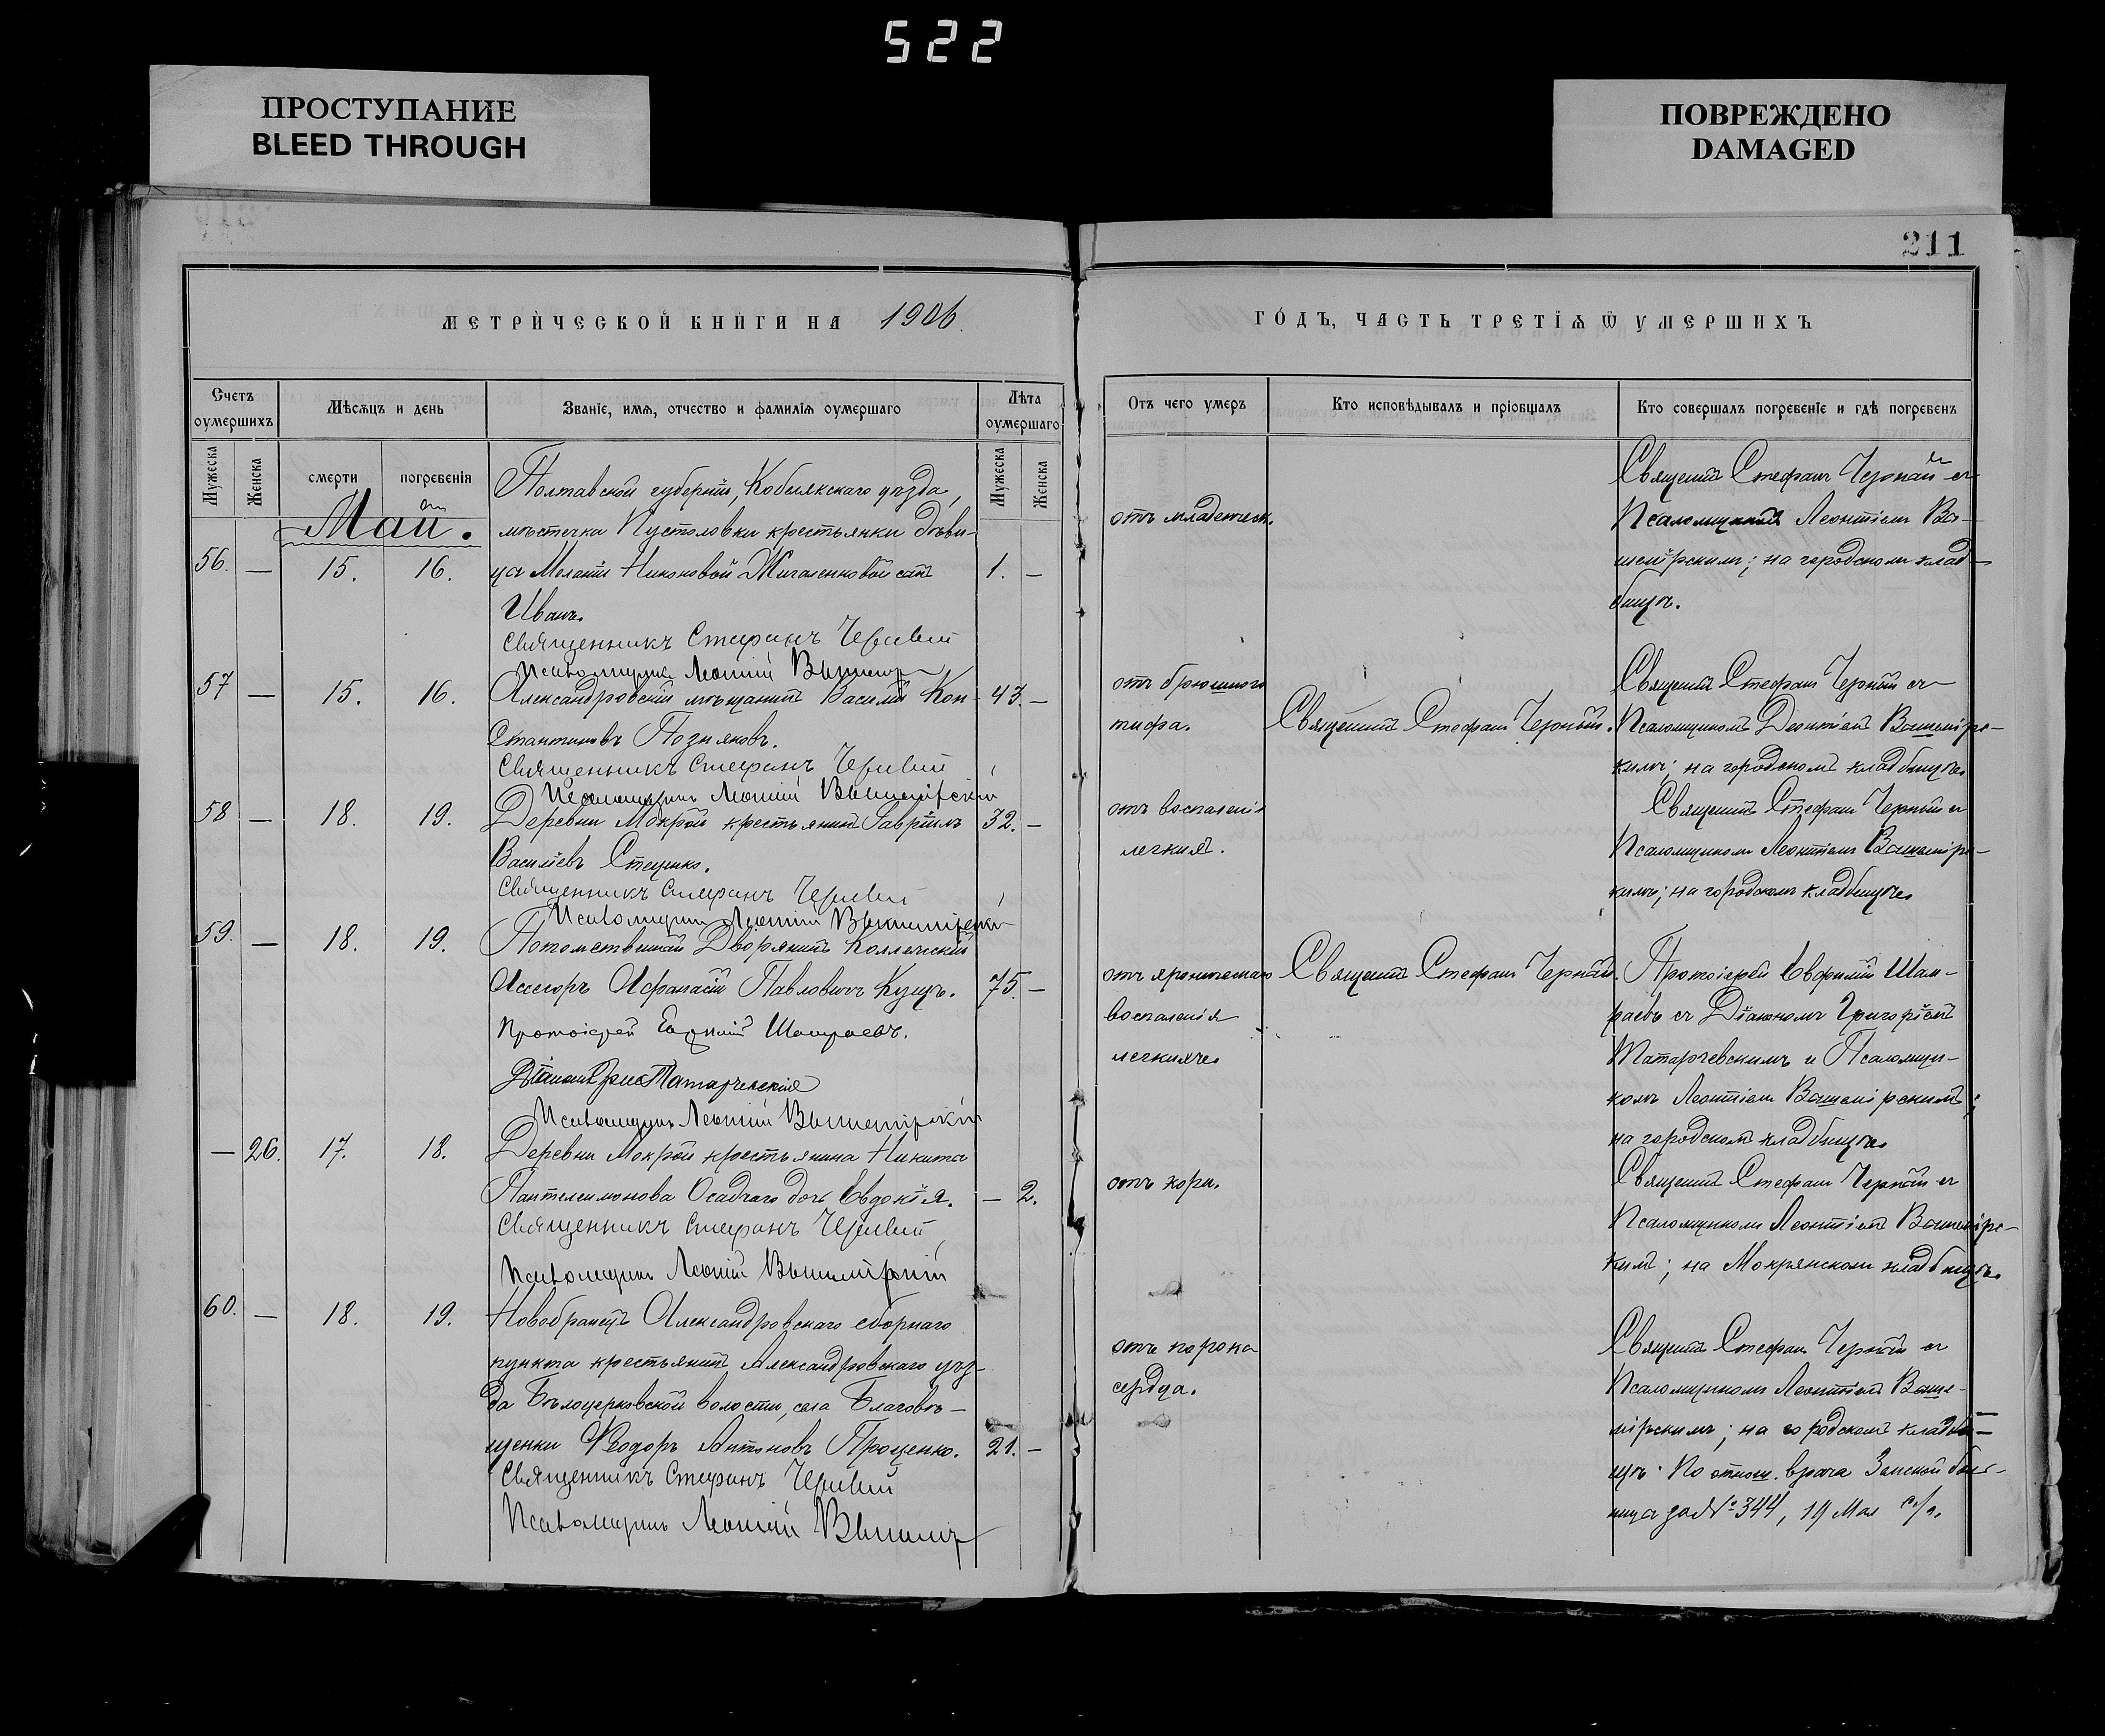 522
ПРОСТУПАНИЕ
BLEED THROUGH
ПОВРЕЖДЕНО
DAMAGED
211
МЕТРИЧЕСКОЙ КНИГИ НА 1906.
ГОДЪ, ЧАСТЬ ТРЕТІЯ Ѿ УМЕРШИХЪ
Счетъ оумершихъ
Мѣсяцъ и день
Званіе, имя, отчество и фамилія оумершаго
Лѣта оумершаго
Отъ чего умеръ
Кто исповѣдывалъ и пріобщалъ
Кто совершалъ погребеніе и гдѣ погребенъ
Мужеска
Женска
смерти
погребенія
Мужеска
Женска
Май.
Полтавской губерніи, Кобелякскаго уѣзда,
мѣстечка Пустоловки крестьянки дѣви-
56. — 15. 16. цы Меланіи Никоновой Жигаленковой сынъ 1. —
Иванъ.
Священникъ Стефанъ Черный
Псаломщикъ Леонтій
отъ младенческ.
Священникъ Стефанъ Черный съ
Псаломщикомъ Леонтіемъ
на городскомъ клад-
бищѣ.
57 — 15. 16. Александровскій мѣщанинъ Василій Кон- 43. —
стантиновъ Позняковъ.
Священникъ Стефанъ Черный
Псаломщикъ Леонтій
отъ брюшного
тифа.
Священникъ Стефанъ Черный.
Священникъ Стефанъ Черный съ
Псаломщикомъ Леонтіемъ
кимъ; на городскомъ кладбищѣ.
58 — 18. 19. Деревни Мокрой крестьянинъ Гавріилъ 32. —
Василіевъ Стеценко.
Священникъ Стефанъ Черный
Псаломщикъ Леонтій
отъ воспаленія
легкихъ.
Священникъ Стефанъ Черный съ
Псаломщикомъ Леонтіемъ
кимъ; на городскомъ кладбищѣ.
59. — 18. 19. Потомственный Дворянинъ Коллежскій
Асессоръ Афанасій Павловичъ Кущъ. 75. —
Протоіерей Евфимій
Діаконъ Григ. Татарчевскій
Псаломщикъ Леонтій
отъ хроническаго
воспаленія
легкихъ.
Священникъ Стефанъ Черный.
Протоіерей Евфимій
съ Діакономъ Григоріемъ
Татарчевскимъ и Псаломщи-
комъ Леонтіемъ
на городскомъ кладбищѣ.
— 26. 17. 18. Деревни Мокрой крестьянина Никиты
Пантелеимонова Осадчаго дочь Евдокія. — 2.
Священникъ Стефанъ Черный
Псаломщикъ Леонтій
отъ кори.
Священникъ Стефанъ Черный съ
Псаломщикомъ Леонтіемъ
кимъ; на Мокрянскомъ кладбищѣ.
60. — 18. 19. Новобранецъ Александровскаго сборнаго
пункта крестьянинъ Александровскаго уѣз-
да Бѣлоцерковской волости, села Благовѣ-
щенки Ѳеодоръ Антоновъ Проценко. 21. —
Священникъ Стефанъ Черный
Псаломщикъ Леонтій
отъ порока
сердца.
Священникъ Стефанъ Черный съ
Псаломщикомъ Леонтіемъ
на городскомъ кладби-
щѣ. По отнош. врача Земской боль-
ницы за № 344, 19 Мая с/г.